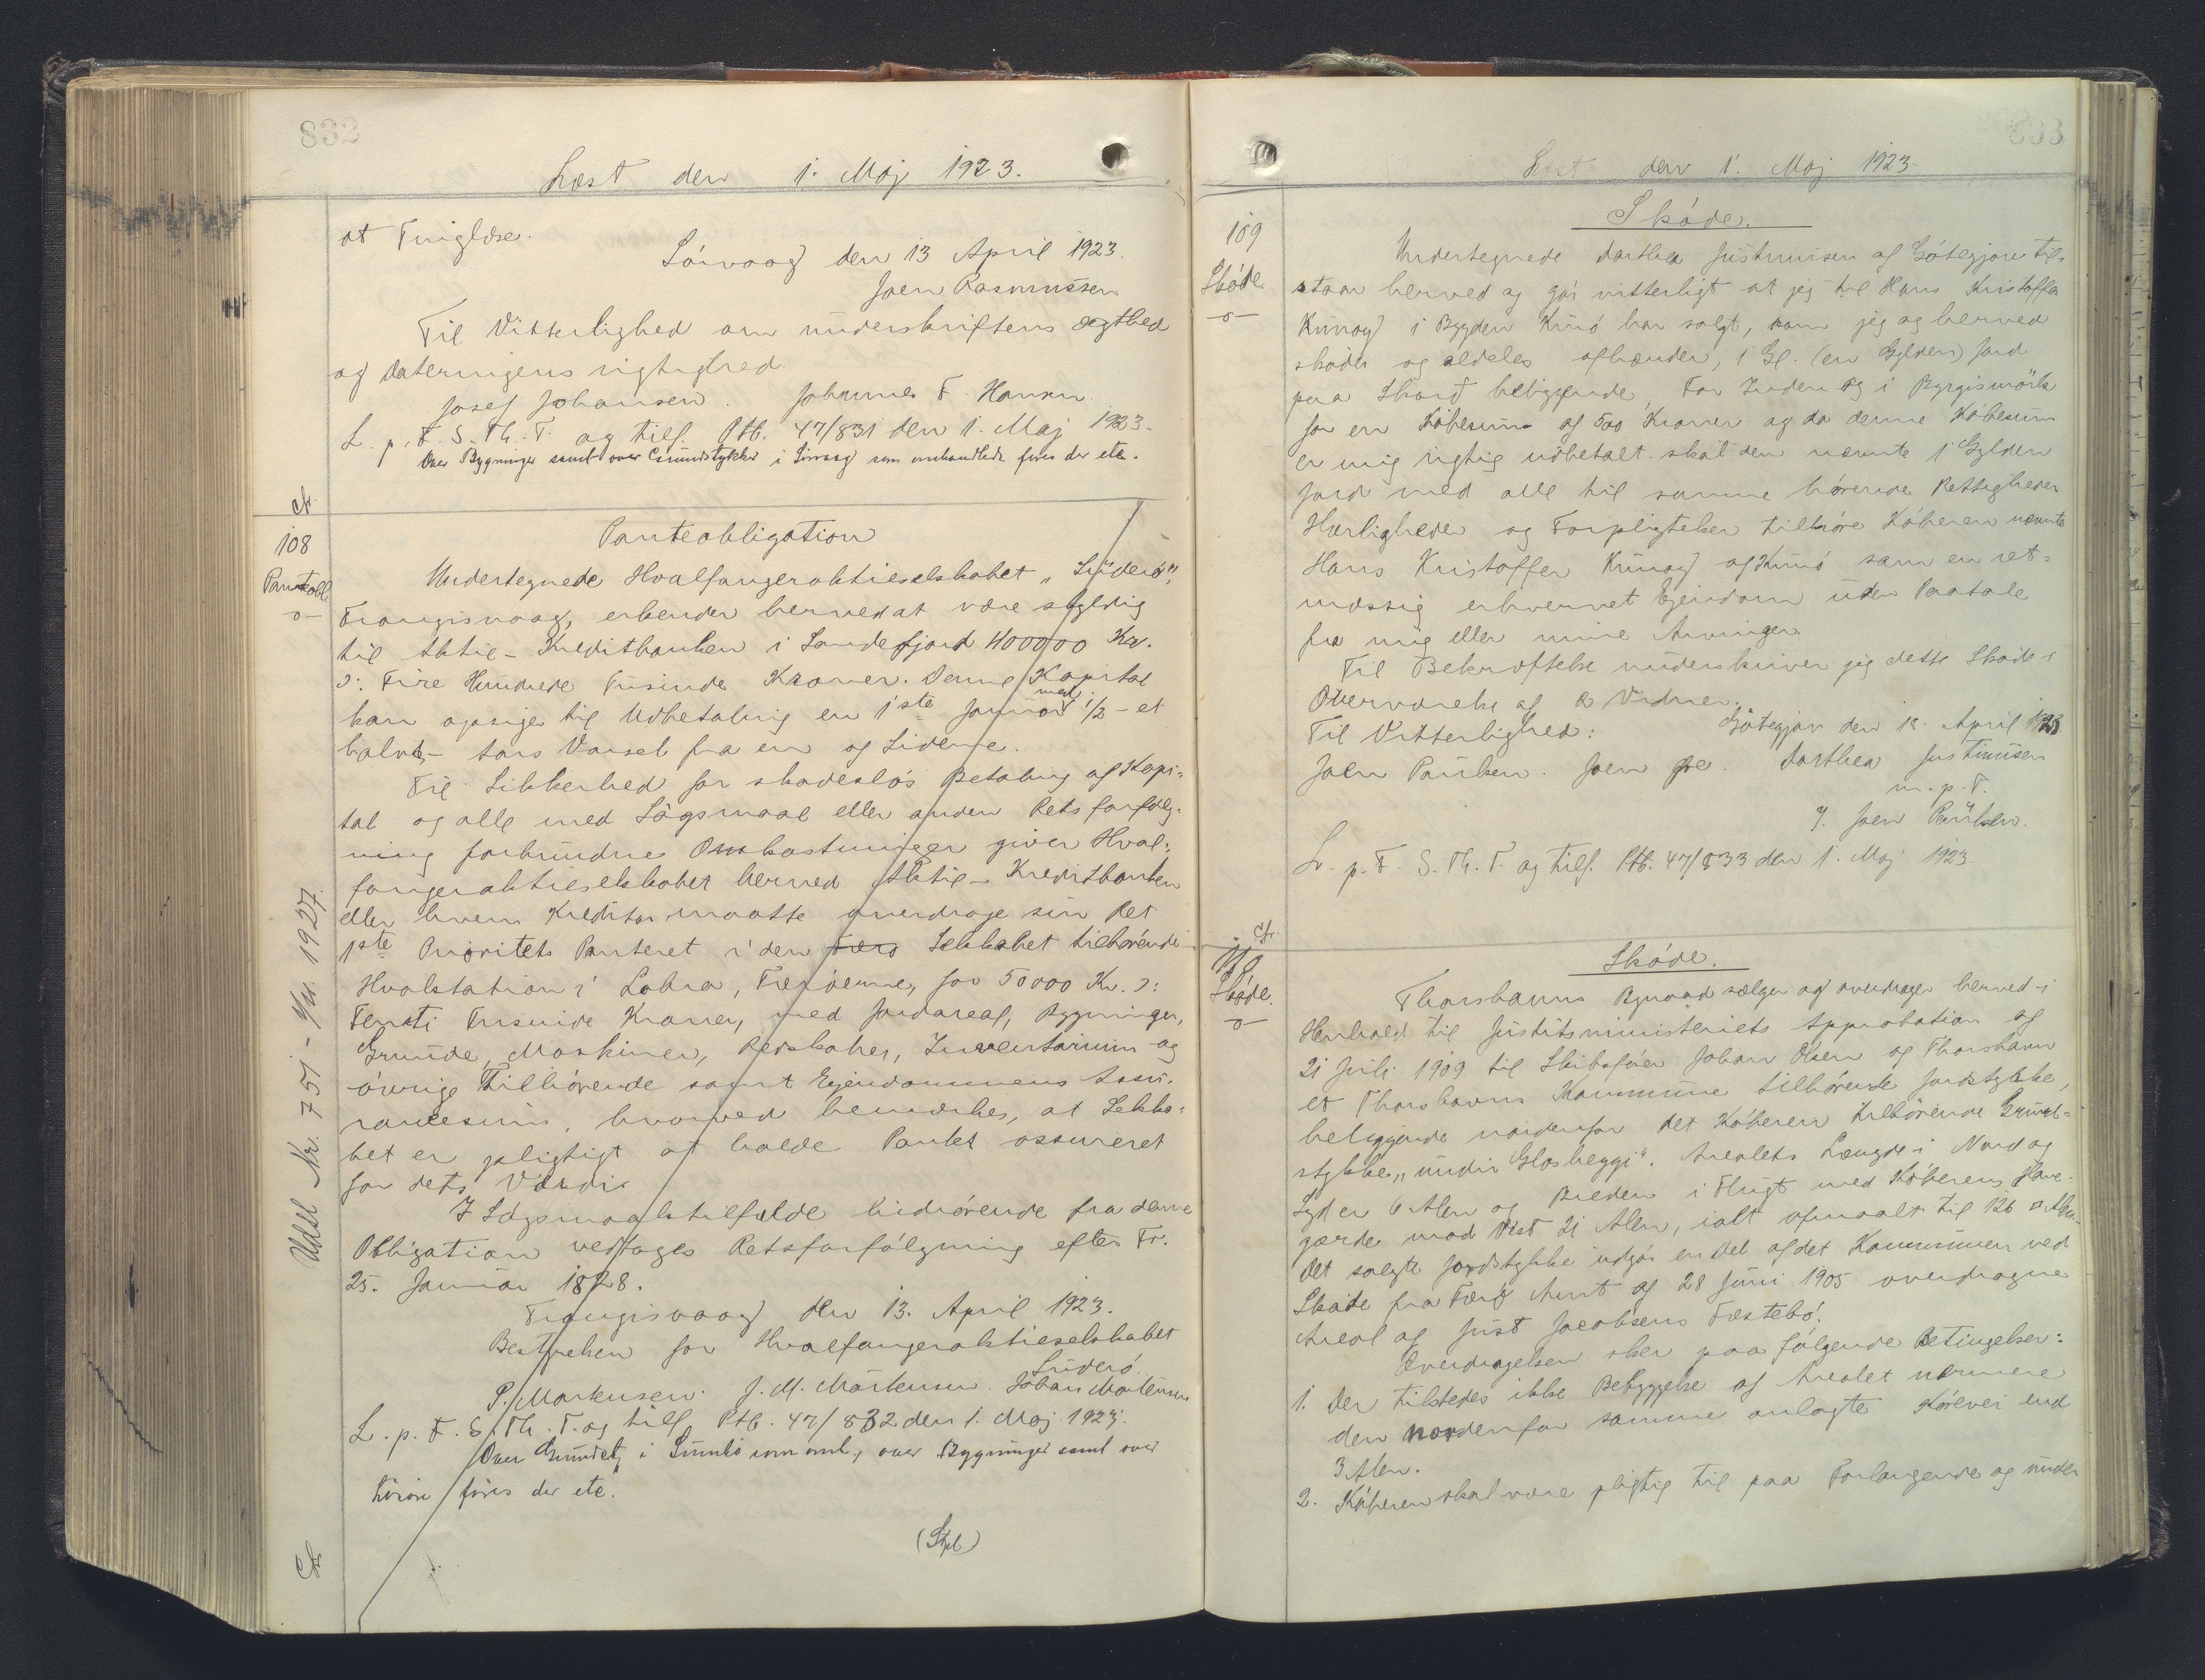 832
Læst den 1. Maj 1923.
at tinglæse.
Sórvaag den 13 April 1923.
Joen Rasmussen
Til Vitterlighed om underskriftens ægthed
og Dateringens rigtighed
Josef Johansen. Johannes F. Hansen.
L. p. F. S. Th. T. og tilf. Ptb. 47/831 den 1. Maj 1923.
Over Bygninger samt over Grundstykke i Sórvaag som omhandlede føres der etc.
cfr.
108
Panteobl.
Panteobligation
Undertegnede Hvalfangeraktieselskabet „Súderó",
Trongisvaag, erkender herved at være skyldig
til Aktie-Kreditbanken i Sandefjord 400000 Kr.
ɔ: Fire Hundrede Tusinde Kroner. Denne Kapital
kan opsiges til Udbetaling en 1ste Januar med 1/2 - et
halvt - Aars Varsel fra en af Siderne.
Til Sikkerhed for skadeslós Betaling af Kapi-
tal og alle med Sógsmaal eller anden Retsforfølg-
ning forbundne Omkostninger giver Hval-
fangeraktieselskabet herved Aktie-Kreditbanken
eller hvem Kreditor maatte overdrage sin Ret
1ste Prioritets Panteret i den Færó Selskabet tilhórende
Hvalstation i Lobra, Færóerne, for 50000 Kr. ɔ:
Femti Tusinde Kroner, med Jordareal, Bygninger,
Grunde, Maskiner, Redskaber, Inventarium og
óvrige Tilhórende samt Ejendommens Assu-
rancesum, hvorved bemærkes, at Selska-
bet er pligtigt at holde Pantet assureret
for dets Værdi.
I Sógsmaalstilfælde hidrórende fra denne
Obligation vedtages Retsforfólgning efter Fr.
25. Januar 1828.
Trongisvaag den 13. April 1923.
Bestyrelsen for Hvalfangeraktieselskabet
Súderó
P. Mortensen. J. M. Mortensen. Johan Mortensen
L. p. F. S. Th. T. og tilf. Ptb. 47/832 den 1. Maj 1923.
Over Grundst. i Sumbó som omh., over Bygninger samt over
Lósóre føres der etc.
(Stpl)
Udsl Nr. 751 - 1927
cfr
833
Læst den 1. Maj 1923.
109
Skóde.
Skóde.
Undertegnede Darthea Justinusen af Gótegjov til-
staar herved og gór vitterligt at jeg til Hans Kristoffer
Kunoy i Bygden Kunó har solgt, som jeg og herved
skóder og aldeles afhænder, 1 Gl. (en Gylden) Jord
paa Skarð beliggende For Inden og i Byrgismörk
for en Kóbesum af 500 Kroner og da denne Kóbesum
er mig rigtig udbetalt skal den nævnte 1 Gylden
Jord med alle til samme hórende Rettigheder
Herligheder og Forpligtelser tilhóre Kóberen nævnte
Hans Kristoffer Kunoy af Kunó som en ret-
mæssig erhvervet Ejendom uden Paatale
fra mig eller mine Arvinger.
Til Bekræftelse underskriver jeg dette Skóde i
Overværelse af 2 Vidner.
Til Vitterlighed: Gótegjov den 12. April 1923
Joen Paulsen. Joen Joe. Darthea Justinusen
m. p. F.
V. Joen Paulsen.
L. p. F. S. Th. T. og tilf. Ptb. 47/833 den 1. Maj 1923.
cfr.
110
Skóde.
Skóde.
Thorshavns Byraad sælger og overdrager herved i
Henhold til Justitsministeriets Approbation af
21 Juli 1909 til Skibsfórer Johan Olsen af Thorshavn
et Thorshavns Kommune tilhórende Jordstykke,
beliggende nordenfor det Kóberen tilhórende Grund-
stykke „undir Glasheyggi". Arealets Længde i Nord og
Syd er 6 Alen og Breden i Flugt med Kóberens Have-
gærde mod Vest 21 Alen, ialt opmaalt til 126 □ Alen.
Det solgte Jordstykke udgór en Del af det Kommunen ved
Skóde fra Færó Amt af 28 Juni 1905 overdragne
Areal af Just Jacobsens Fæstebó.
Overdragelsen sker paa fólgende Betingelser:
1. Der tilstedes ikke Bebyggelse af Arealet nærmere
den nordenfor samme anlagte Kórevei end
3 Alen.
2. Kóberen skal være pligtig til paa Forlangende og under